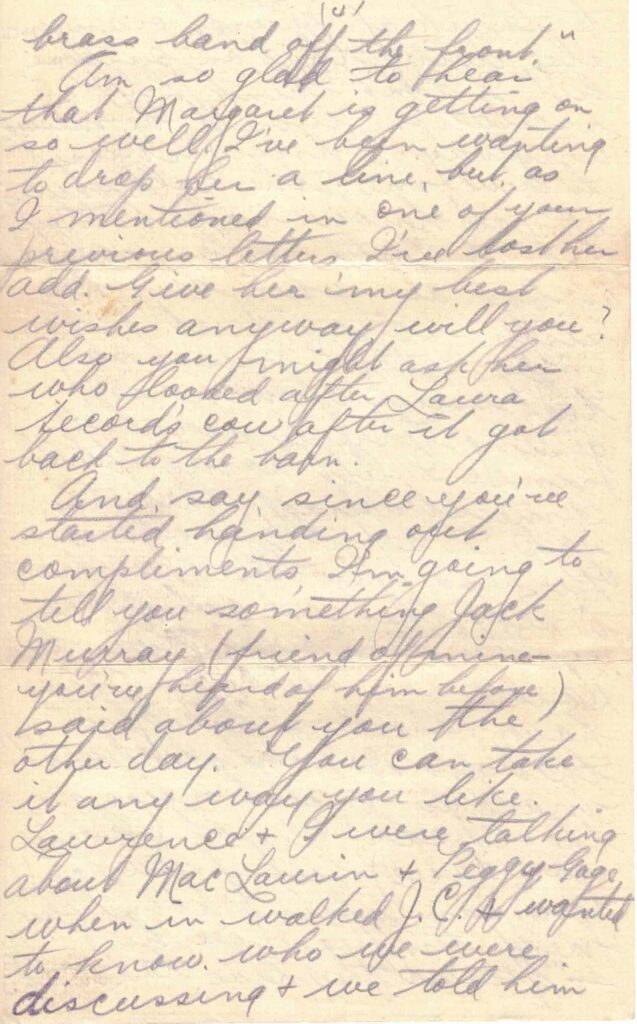 brass band off the front."
Am so glad to hear
that Margaret is getting on
so well. I've been wanting
to drop her a line, but, as
I mentioned in one of your
previous letters I've lost her
add. Give her my best
wishes anyway, will you?
Also you might ask her
who looked after Laura
Secord's cow after it got
back to the barn.
And, say, since you've
started handing out
compliments, I'm going to
tell you something Jack
Murray (friend of mine -
you've heard of him before)
said about you the
other day. You can take
it any way you like.
Lawrence & I were talking
about Mac Laurin & Peggy Gage
when in walked J. C. & wanted
to know who we were
discussing & we told him